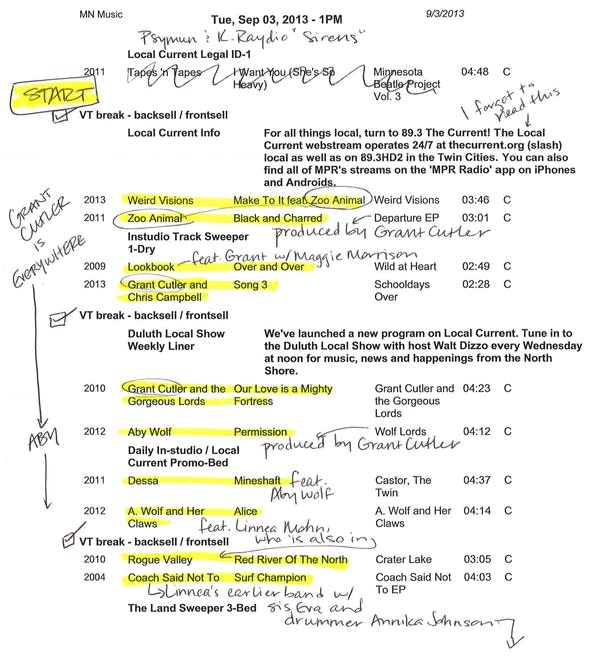 MN Music Tue, Sep 03, 2013 - 1PM 9/3/2013
Psymun & K. Raydio "Sirens"
Local Current Legal ID-1
2011 Tapes 'n Tapes I Want You (She's So Minnesota 04:48 C
Heavy) Beatle Project
Vol. 3
START
I forgot to
read this
VT break - backsell / frontsell
Local Current Info For all things local, turn to 89.3 The Current! The Local
Current webstream operates 24/7 at thecurrent.org (slash)
local as well as on 89.3HD2 in the Twin Cities. You can also
find all of MPR's streams on the 'MPR Radio' app on iPhones
and Androids.
2013 Weird Visions Make To It feat. Zoo Animal Weird Visions 03:46 C
2011 Zoo Animal Black and Charred Departure EP 03:01 C
GRANT
CUTLER
IS
EVERYWHERE
produced by Grant Cutler
Instudio Track Sweeper
1-Dry
feat. Grant w/ Maggie Morrison
2009 Lookbook Over and Over Wild at Heart 02:49 C
2013 Grant Cutler and Song 3 Schooldays 02:28 C
Chris Campbell Over
VT break - backsell / frontsell
Duluth Local Show We've launched a new program on Local Current. Tune in to
Weekly Liner the Duluth Local Show with host Walt Dizzo every Wednesday
at noon for music, news and happenings from the North
Shore.
2010 Grant Cutler and the Our Love is a Mighty Grant Cutler and 04:23 C
Gorgeous Lords Fortress the Gorgeous
Lords
ABY
2012 Aby Wolf Permission Wolf Lords 04:12 C
produced by Grant Cutler
Daily In-studio / Local
Current Promo-Bed
2011 Dessa Mineshaft feat. Castor, The 04:37 C
Aby Wolf Twin
2012 A. Wolf and Her Alice A. Wolf and Her 04:14 C
Claws feat. Linnea Mohn, Claws
who is also in
VT break - backsell / frontsell
2010 Rogue Valley Red River Of The North Crater Lake 03:05 C
2004 Coach Said Not To Surf Champion Coach Said Not 04:03 C
To EP
Linnea's earlier band w/
The Land Sweeper 3-Bed sis Eva and
drummer Annika Johnson